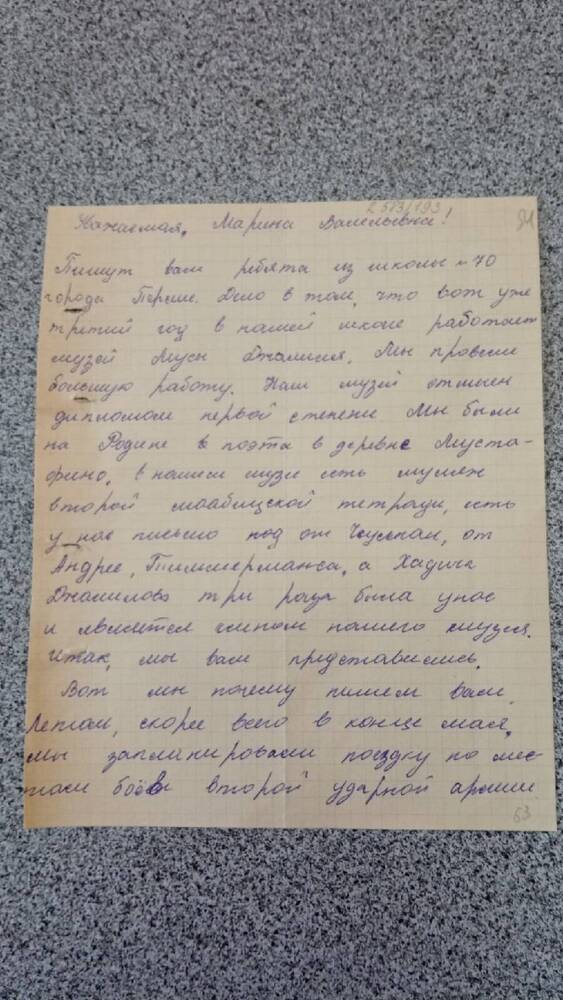 2513/193
91
Уважаемая, Марина Валельевна!
Пишут вам ребята из школы №70
города Перми. Дело в том, что вот уже
третий год в нашей школе работает
музей Мусы Джалиля, Мы провели
большую работу. Наш музей отмечен
дипломом первой степени Мы были
на Родине в поэта в деревне Муста-
фино, в нашем музее есть муляж
второй моабитской тетради, есть
у нас письмо под от Чулпан, от
Андре, Тиммерманса, а Хадича
Джалилова три раза была у нас
и является членом нашего музея.
Итак, мы вам представились.
Вот мы почему пишем вам,
Летом, скорее всего в конце мая,
мы запланировали поездку по мес-
там боёв второй ударной армии
63